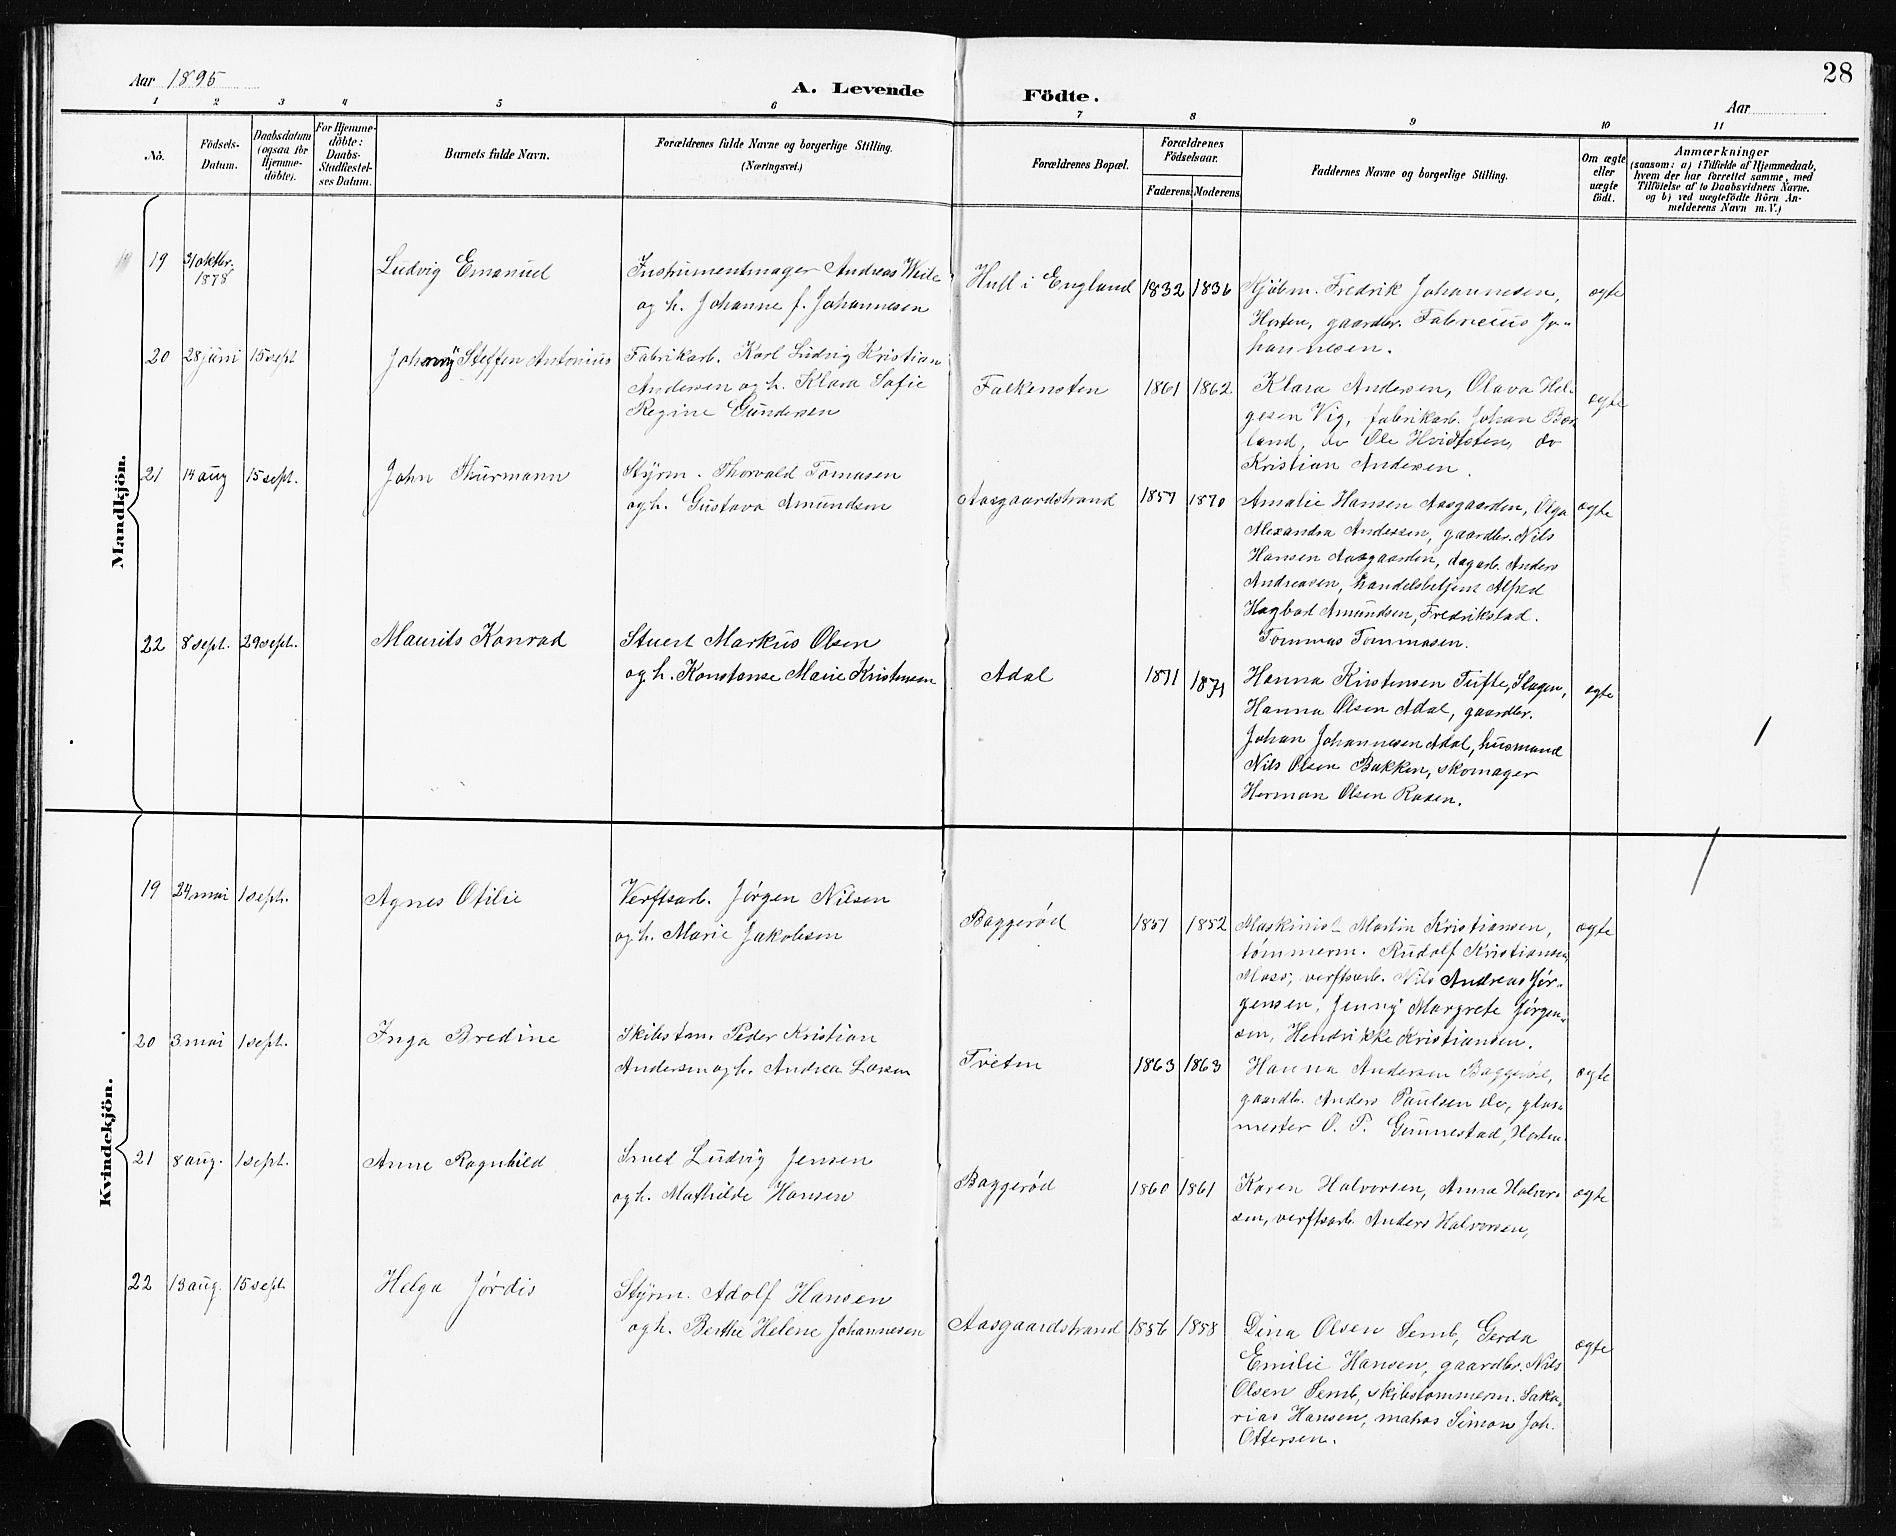 28
Aar 1895
A. Levende Födte.
Aar
1 2 3 4 5 6 7 8 9 10 11
No.
Födsels-
Datum.
Daabsdatum
(ogsaa for
Hjemme-
döbte).
For Hjemme-
döbte:
Daabs-
Stadfæstel-
ses Datum.
Barnets fulde Navn.
Forældrenes fulde Navne og borgerlige Stilling.
(Næringsvei.)
Forældrenes Bopæl.
Forældrenes
Födselsaar.
Faderens. Moderens.
Faddernes Navne og borgerlige Stilling.
Om ægte
eller
uægte
födt.
Anmærkninger
(saasom: a) i Tilfælde af Hjemmedaab,
hvem der har forrettet samme, med
Tilföielse af to Daabsvidners Navne.
og b) ved uægtefödte Börn An-
melderens Navn m. V.)
Mandkjön.
19 31 oktbr.
1878
Ludvig Emanuel
Instrumentmager Andreas
og h. Johanne f. Johannesen
Hull i England 1832 1836
Kjøbm. Fredrik Johannesen,
Horten, gaardbr. Fabricius Jo-
hannesen.
ægte
20 28 juni 15 sept
Johnny Steffen Antonius
Fabrikarb. Karl Ludvig Kristian
Andersen og h. Klara Sofie
Regine Gundersen
Falkensten 1861 1862
Klara Andersen, Olava Hel-
gesen Vig, fabrikarb. Johan
land, do Ole Hvidtsten, do
Kristian Andersen.
ægte
21 14 aug 15 sept.
John Thurmann
Styrm. Thorvald Tomasen
og h. Gustava Amundsen
Aasgaardstrand 1857 1870
Amalie Hansen Aasgaarden, Olga
Alexandra Andersen, gaardbr. Nils
Hansen Aasgaarden, dagarb. Anders
Andreasen, handelsbetjent Alfred
Hagbart Amundsen, Fredrikstad.
Tommas Tommasen.
ægte
22 8 sept. 29 sept.
Maurits Konrad
Stuert Markus Olsen
og h. Konstanse Marie Kristensen
Adal 1871 1871
Hanna Kristensen Tufte, Slagen,
Hanna Olsen Adal, gaardbr.
Johan Johannesen Adal, husmand
Nils Olsen Bakken, skomager
Herman Olsen Rasen.
ægte
Kvindekjön.
19 24 mai 1 sept.
Agnes Otilie
Verftsarb. Jørgen Nilsen
og h. Marie Jakobsen
Baggerød 1851 1852
Maskinist Martin Kristiansen,
tømmerm. Rudolf Kristiansen,
Moss, verftsarb. Nils Andreas Jør-
gensen, Jenny Margrete Jørgen-
sen, Hendrikke Kristiansen.
ægte
20 3 mai 1 sept.
Inga Bredine
Skibstm. Peder Kristian
Andersen og h. Andrea Larsen
Tveten 1863 1863
Hanna Andersen Baggerød,
gaardbr. Anders Paulsen do, glas-
mester O. P. Gunnestad, Horten.
ægte
21 8 aug. 1 sept.
Anne Ragnhild
Smed Ludvig Jensen
og h. Mathilde Hansen
Baggerød 1860 1861
Karen Halvorsen, Anna Halvor-
sen, verftsarb. Anders Halvorsen,
ægte
22 13 aug. 15 sept.
Helga Jørdis
Styrm. Adolf Hansen
og h. Berthe Helene Johannesen
Aasgaardstrand 1856 1858
Dina Olsen Semb, Gerda
Emilie Hansen, gaardbr. Nils
Olsen Semb, skibstømmerm. Saka-
rias Hansen, matros Simon Joh.
Ottersen.
ægte